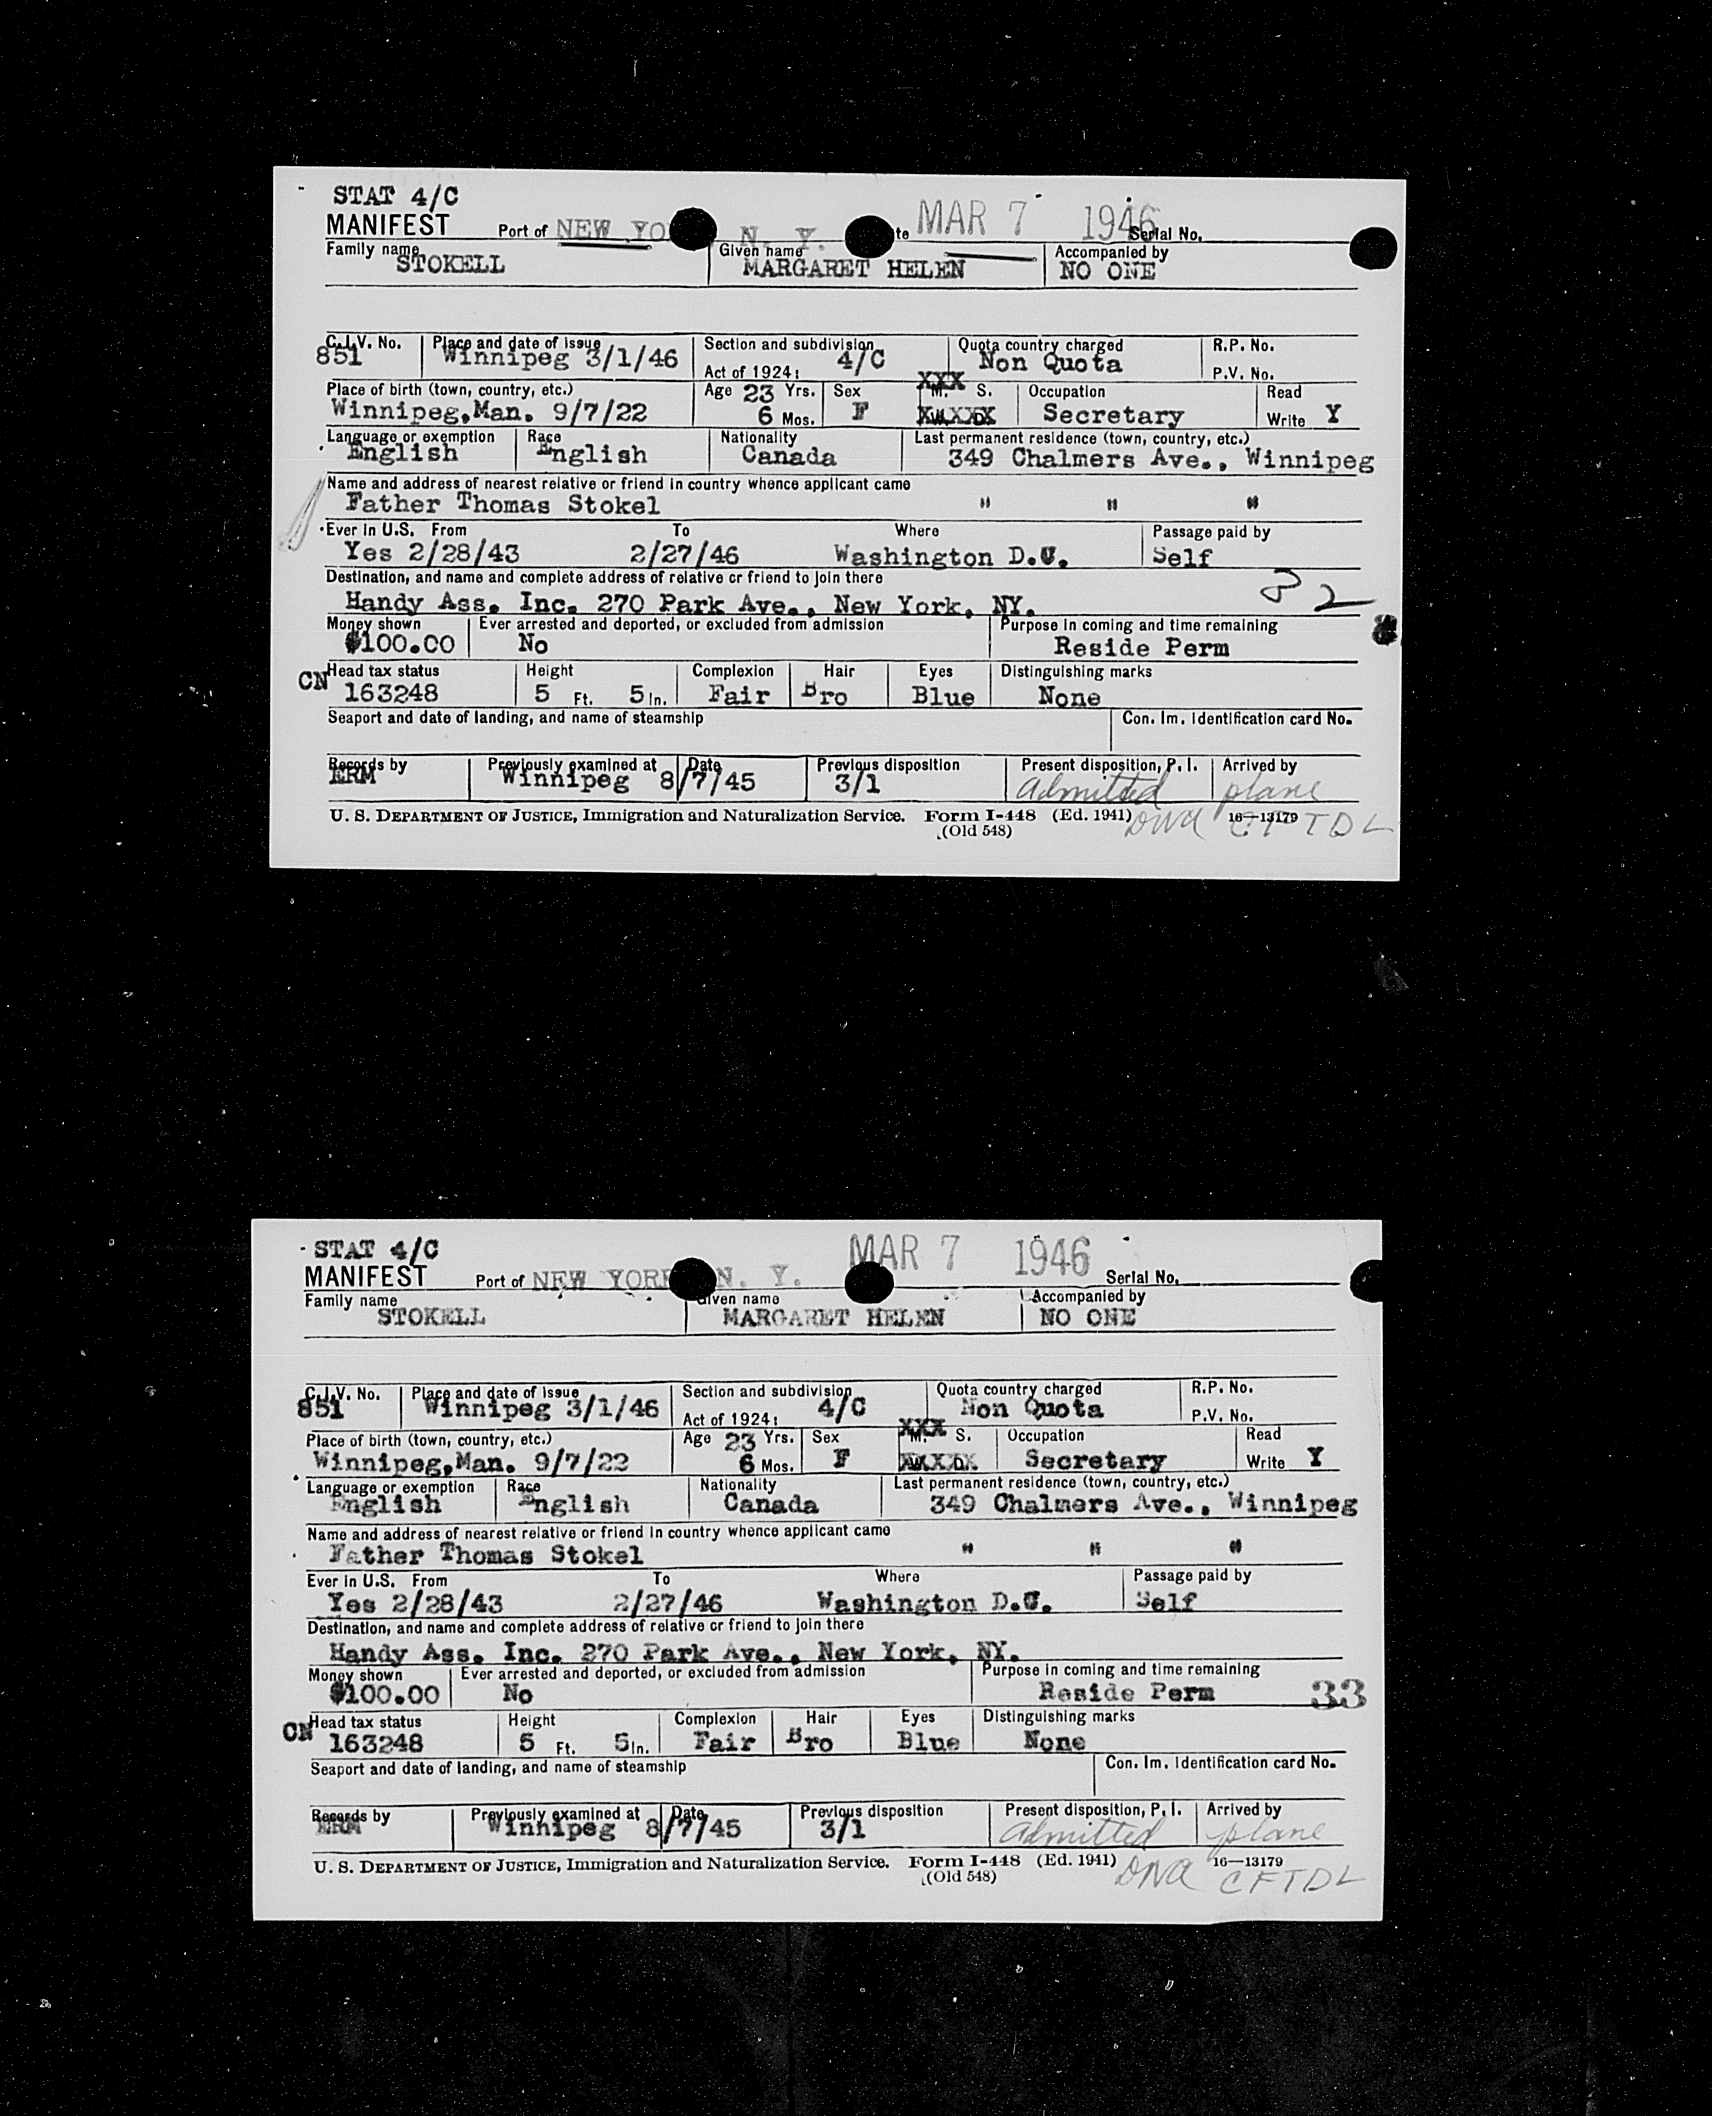 STAT 4/C
MANIFEST Port of NEW YO N. Y. te MAR 7 1946 Serial No.
Family name Given name Accompanied by
STOKELL MARGARET HELEN NO ONE
C.I.V. No. Place and date of issue Section and subdivision Quota country charged R.P. No.
851 Winnipeg 3/1/46 Act of 1924: 4/C Non Quota P.V. No.
Place of birth (town, country, etc.) Age 23 Yrs. Sex XXX M. S. Occupation Read
Winnipeg,Man. 9/7/22 6 Mos. F Secretary Write Y
Language or exemption Race Nationality Last permanent residence (town, country, etc.)
English English Canada 349 Chalmers Ave., Winnipeg
Name and address of nearest relative or friend in country whence applicant came
Father Thomas Stokel " " "
Ever in U.S. From To Where Passage paid by
Yes 2/28/43 2/27/46 Washington D.C. Self
Destination, and name and complete address of relative or friend to join there
Handy Ass. Inc. 270 Park Ave., New York, NY. 32
Money shown Ever arrested and deported, or excluded from admission Purpose in coming and time remaining
$100.00 No Reside Perm
Head tax status Height Complexion Hair Eyes Distinguishing marks
CN 163248 5 Ft. 5 In. Fair Bro Blue None
Seaport and date of landing, and name of steamship Con. Im. Identification card No.
Records by Previously examined at Date Previous disposition Present disposition, P. I. Arrived by
ERM Winnipeg 8/7/45 3/1 Admitted plane
U. S. DEPARTMENT OF JUSTICE, Immigration and Naturalization Service. Form I-448 (Ed. 1941) DWA 16—13179
(Old 548) CFTDL
STAT 4/C
MANIFEST Port of NEW YORK N. Y. MAR 7 1946 Serial No.
Family name Given name Accompanied by
STOKELL MARGARET HELEN NO ONE
C.I.V. No. Place and date of issue Section and subdivision Quota country charged R.P. No.
851 Winnipeg 3/1/46 Act of 1924: 4/C Non Quota P.V. No.
Place of birth (town, country, etc.) Age 23 Yrs. Sex XXX M. S. Occupation Read
Winnipeg,Man. 9/7/22 6 Mos. F Secretary Write Y
Language or exemption Race Nationality Last permanent residence (town, country, etc.)
English English Canada 349 Chalmers Ave., Winnipeg
Name and address of nearest relative or friend in country whence applicant came
Father Thomas Stokel " " "
Ever in U.S. From To Where Passage paid by
Yes 2/28/43 2/27/46 Washington D.C. Self
Destination, and name and complete address of relative or friend to join there
Handy Ass. Inc. 270 Park Ave., New York, NY.
Money shown Ever arrested and deported, or excluded from admission Purpose in coming and time remaining
$100.00 No Reside Perm 33
Head tax status Height Complexion Hair Eyes Distinguishing marks
CN 163248 5 Ft. 5 In. Fair Bro Blue None
Seaport and date of landing, and name of steamship Con. Im. Identification card No.
Records by Previously examined at Date Previous disposition Present disposition, P. I. Arrived by
ERM Winnipeg 8/7/45 3/1 Admitted plane
U. S. DEPARTMENT OF JUSTICE, Immigration and Naturalization Service. Form I-448 (Ed. 1941) DWA 16—13179
(Old 548) CFTDL